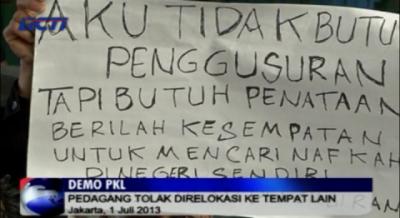 RCTI
AKU TIDAK BUTU
PENGGUSURAN
TAPI BUTUH PENATAAN
BERILAH KESEMPATAN
UNTUK MENCARI NAFKAH
DI NEGERI SENDIRI
DEMO PKL
PEDAGANG TOLAK DIRELOKASI KE TEMPAT LAIN
Jakarta, 1 Juli 2013